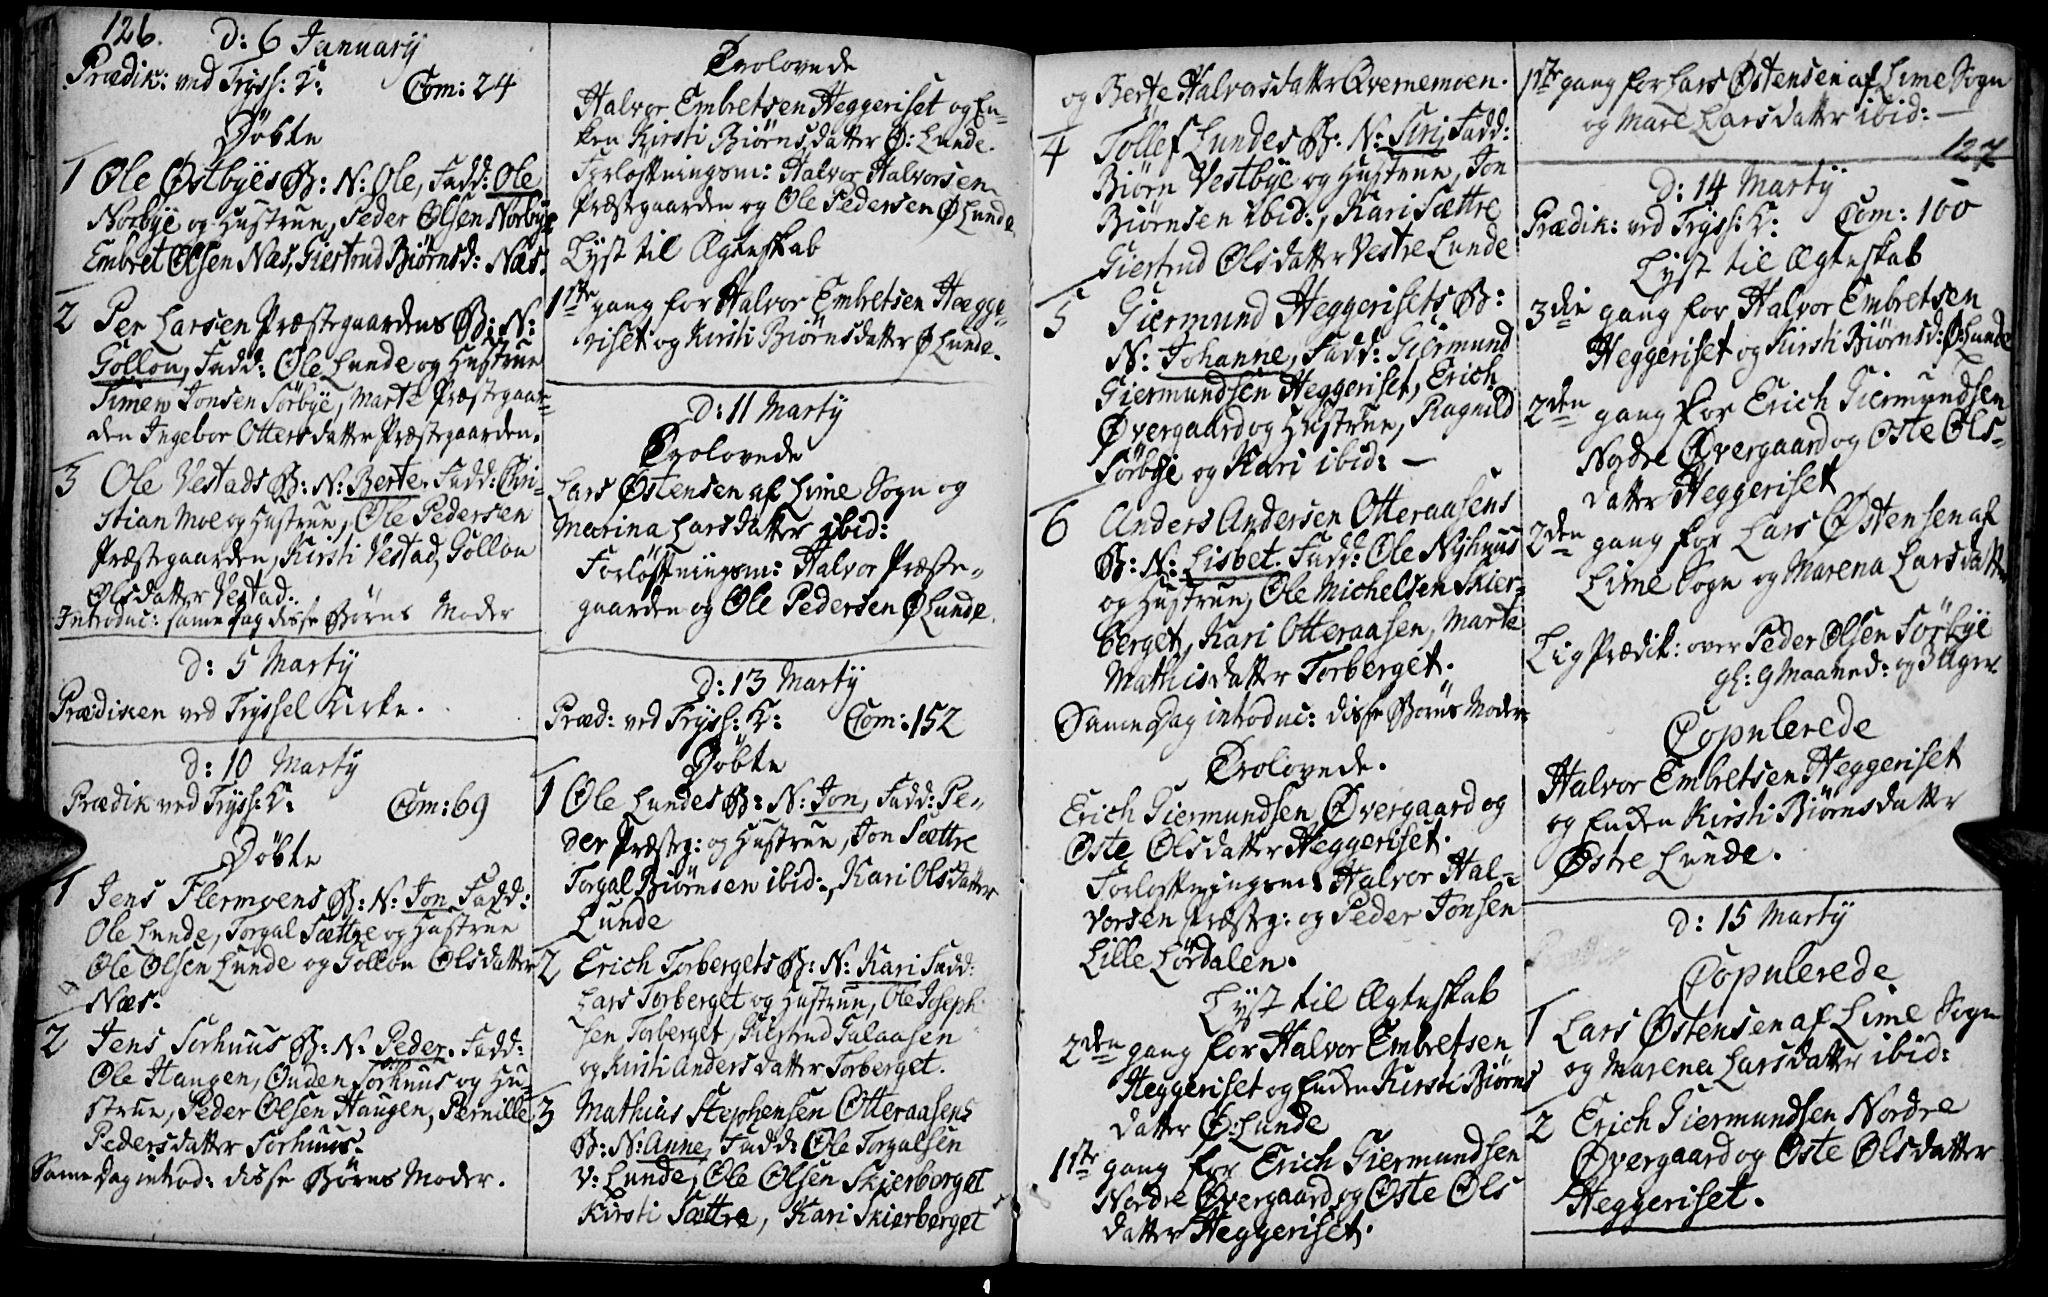 126.
D: 6 Januarÿ
Prædik: ved Tryss: K:   Com: 24
Döbte
1 Ole Østbyes B: N: Ole, Fadd: Ole
Norbÿe og Hustrue, Peder Olsen Norbÿe
Embret Olsen Næs, Giertrud Biørnsd: Næs.
2 Per Larsen Præstegaardens B: N:
Gollou, Fadd: Ole Lunde og Hustrue
Simen Jonsen Sörbÿe, Marte Præstegaar-
den Ingebor Ottersdatter Præstegaarden.
3 Ole Vestads B: N: Berte. Fadd: Chri-
stian Moe og Hustrue, Ole Pedersen
Præstegaarden, Kirsti Vestad, Gollou
Olsdatter Vestad.
Introduc: same dag disse Börns Moder
D: 5 Martÿ
Prædiken ved Tryssel Kirke.
D: 10 Martÿ
Prædik ved Tryss: K:   Com: 69
Döbte
1 Jens Flermoens B: N: Jon, Fadd:
Ole Lunde, Torgal Sættre og Hustrue
Ole Olsen Lunde og Gollou Olsdatter
Næs.
2 Jens Sorhuus B: N: Peder. Fadd:
Ole Haugen, Ouden Sorhuus og Hu-
strue, Peder Olsen Haugen, Pernille
Pedersdatter Sorhuus.
Same Dag introd: disse Börns Moder.
Trolovede
Halvor Embretsen Heggeriset og En-
ken Kirsti Biörnsdatter Ø: Lunde.
Forlofningsm: Halvor Halvorsen
Præstgaarden og Ole Pedersen Ø Lunde
Lyst til Ægteskab
1ste gang for Halvor Embretsen Hegge-
riset og Kirsti Biörnsdatter Ø Lunde.
D: 11 Martÿ
Trolovede
Lars Østensen af Lime Sogn og
Marina Larsdatter ibid:
Forlöfningsm: Halvor Præste-
gaarden og Ole Pedersen Ø Lunde.
D: 13 Martÿ
Præd: ved Tryss: K:   Com: 152
Döbte
1 Ole Lundes B: N: Jon, Fadd: Pe-
der Præstg: og Hustrue, Jon Sættre
Torgal Biørnsen ibid:, Kari Olsdatter
Lunde
2 Erich Torbergets B: N: Kari Fadd:
Lars Torberget og Hustrue, Ole Joseph-
sen Torberget, Giertrud Galaasen
og Kirsti Andersdatter Torberget.
3 Mathias Stephensen Otteraasens
B: N: Anne, Fadd: Ole Torgalsen
V: Lunde, Ole Olsen Skierberget
Kirsti Sættre, Kari Skierberget
og Berte Halvorsdatter Qvernemoen.
4 Tollef Lundes B: N: Siri Fadd:
Biørn Vestbÿe og Hustrue, Jon
Biørnsen ibid:, Kari Sættre
Giertrud Olsdatter Vestre Lunde
5 Giermund Heggerisets B:
N: Johanne, Fadd: Giermund
Giermundsen Heggeriset, Erich
Øvergaard og Hustrue, Ragnild
Sörbÿe og Kari ibid: —
6 Anders Andersen Otteraasens
B: N: Lisbet. Fadd: Ole Nÿhuus
og Hustrue, Ole Michelsen Skier-
berget, Kari Otteraasen, Marte
Mathisdatter Torberget.
Same Dag introduc: disse Börns Moder
Trolovede.
Erich Giermundsen Øvergaard og
Oste Olsdatter Heggeriset.
Forlofningsm: Halvor Hal-
vorsen Præstg: og Peder Jonsen
Lille Lördalen.
Lyst til Ægteskab
2den gang for Halvor Embretsen
Heggeriset og Enken Kirsti Biørns
datter Ø: Lunde
1ste gang for Erich Giermundsen
Nordre Øvergaard og Oste Ols
datter Heggeriset.
1ste gang for Lars Østensen af Lime Sogn
og Mare Larsdatter ibid: —
127
D: 14 Martÿ
Prædik: ved Tryss: K:   Com: 100
Lyst til Ægteskab
3die gang for Halvor Embretsen
Heggeriset og Kirsti Biørnsd: Ø: Lunde
2den gang for Erich Giermundsen
Nordre Øvergaard og Oste Ols-
datter Heggeriset
2den gang for Lars Østensen af
Lime Sogn og Marena Larsdatter
Lig Prædik: over Peder Olsen Sörbÿe
gl: 9 Maaned: og 3 Uger.
Copulerede
Halvor Embretsen Heggeriset
og Enken Kirsti Biørnsdatter
Østre Lunde.
D: 15 Martÿ
Copulerede
1 Lars Østensen af Lime Sogn
og Marena Larsdatter ibid:
2 Erich Giermundsen Nordre
Øvergaard og Oste Olsdatter
Heggeriset.